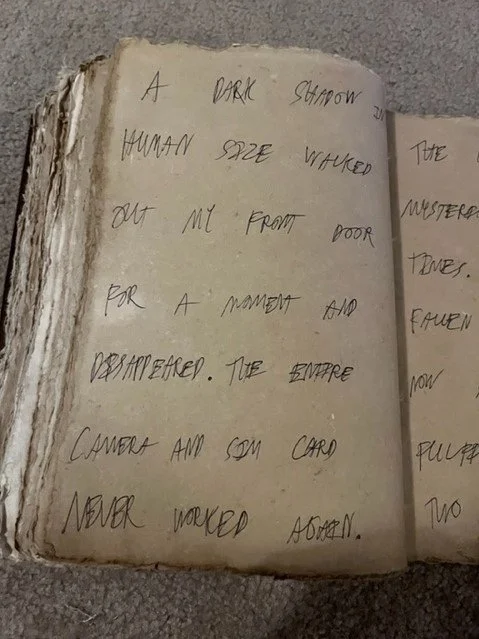 A DARK SHADOW IN
HUMAN SIZE WALKED
OUT MY FRONT DOOR
FOR A MOMENT AND
DISAPPEARED. THE ENTIRE
CAMERA AND SIM CARD
NEVER WORKED AGAIN.
THE
TIMES.
FALLEN
NOW
TWO